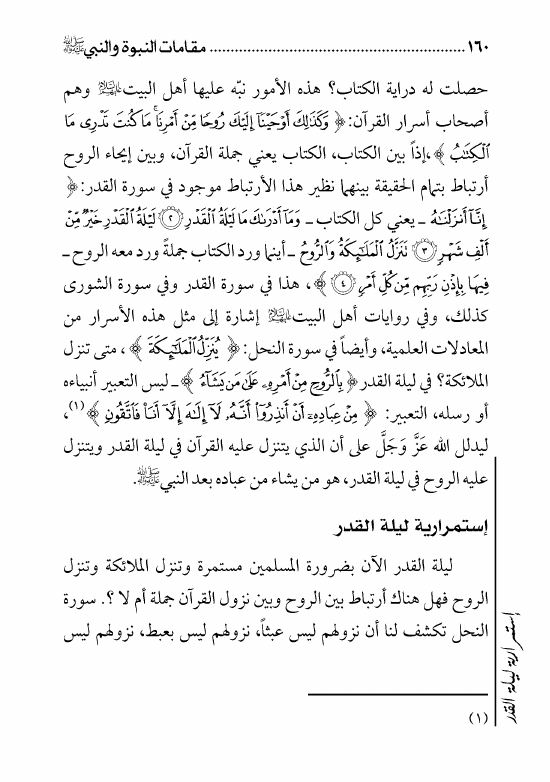 ١٦٠ ................................................................ مقامات النبوة والنبي ﷺ
حصلت له دراية الكتاب؟ هذه الأمور نبّه عليها أهل البيت عليهم السلام وهم
أصحاب أسرار القرآن: ﴿ وَكَذَٰلِكَ أَوْحَيْنَآ إِلَيْكَ رُوحًا مِّنْ أَمْرِنَا ۚ مَا كُنتَ تَدْرِى مَا
ٱلْكِتَٰبُ ﴾،إذاً بين الكتاب، الكتاب يعني جملة القرآن، وبين إيحاء الروح
أرتباط بتمام الحقيقة بينهما نظير هذا الأرتباط موجود في سورة القدر: ﴿
إِنَّآ أَنزَلْنَٰهُ ـ يعني كل الكتاب ـ وَمَآ أَدْرَىٰكَ مَا لَيْلَةُ ٱلْقَدْرِ ۝٢ لَيْلَةُ ٱلْقَدْرِ خَيْرٌ مِّنْ
أَلْفِ شَهْرٍ ۝٣ تَنَزَّلُ ٱلْمَلَٰٓئِكَةُ وَٱلرُّوحُ ـ أينما ورد الكتاب جملةً ورد معه الروح ـ
فِيهَا بِإِذْنِ رَبِّهِم مِّن كُلِّ أَمْرٍ ۝٤ ﴾، هذا في سورة القدر وفي سورة الشورى
كذلك، وفي روايات أهل البيت عليهم السلام إشارة إلى مثل هذه الأسرار من
المعادلات العلمية، وأيضاً في سورة النحل: ﴿ يُنَزِّلُ ٱلْمَلَٰٓئِكَةَ ﴾، متى تنزل
الملائكة؟ في ليلة القدر ﴿ بِٱلرُّوحِ مِنْ أَمْرِهِۦ عَلَىٰ مَن يَشَآءُ ﴾ ـ ليس التعبير أنبياءه
أو رسله، التعبير: ﴿ مِنْ عِبَادِهِۦٓ أَنْ أَنذِرُوٓا۟ أَنَّهُۥ لَآ إِلَٰهَ إِلَّآ أَنَا۠ فَٱتَّقُونِ ﴾(١)،
ليدلل الله عَزَّ وَجَلَّ على أن الذي يتنزل عليه القرآن في ليلة القدر ويتنزل
عليه الروح في ليلة القدر، هو من يشاء من عباده بعد النبي ﷺ.
إستمرارية ليلة القدر
ليلة القدر الآن بضرورة المسلمين مستمرة وتنزل الملائكة وتنزل
الروح فهل هناك أرتباط بين الروح وبين نزول القرآن جملة أم لا ؟. سورة
النحل تكشف لنا أن نزولهم ليس عبثاً، نزولهم ليس بعبط، نزولهم ليس
إستمرارية ليلة القدر
(١)